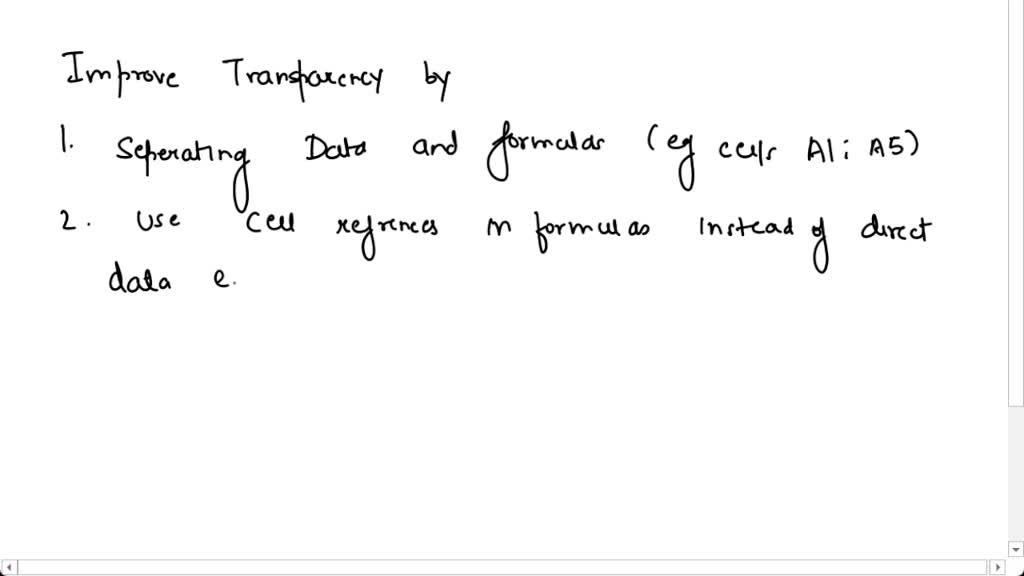 Improve Transparency by
1. Seperating Data and formulas (eg cells A1: A5)
2. Use Cell refrences in formulas instead of direct
data e.